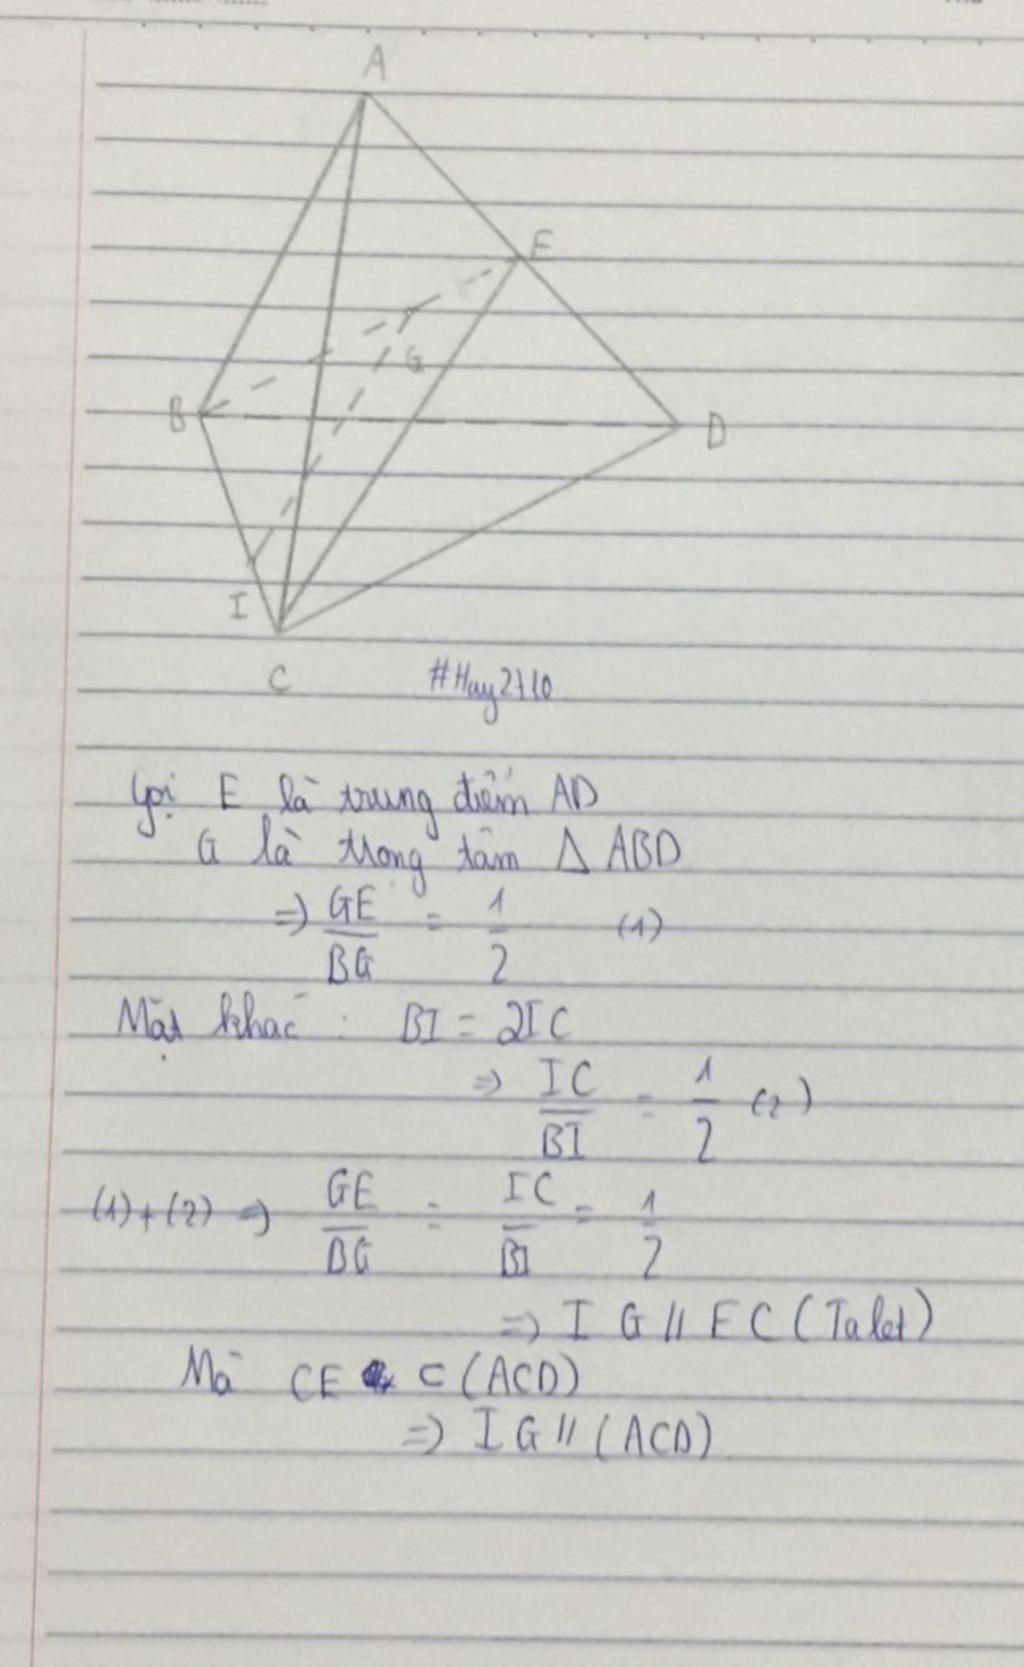 A
E
G
B
D
I
C
#Huy2110
Gọi E là trung điểm AD
G là trọng tâm Δ ABD
=> GE/BG = 1/2 (1)
Mặt khác : BI = 2IC
=> IC/BI = 1/2 (2)
(1)+(2) => GE/BG = IC/BI = 1/2
=> IG // EC (Talet)
Mà CE ⊂ (ACD)
=> IG // (ACD)